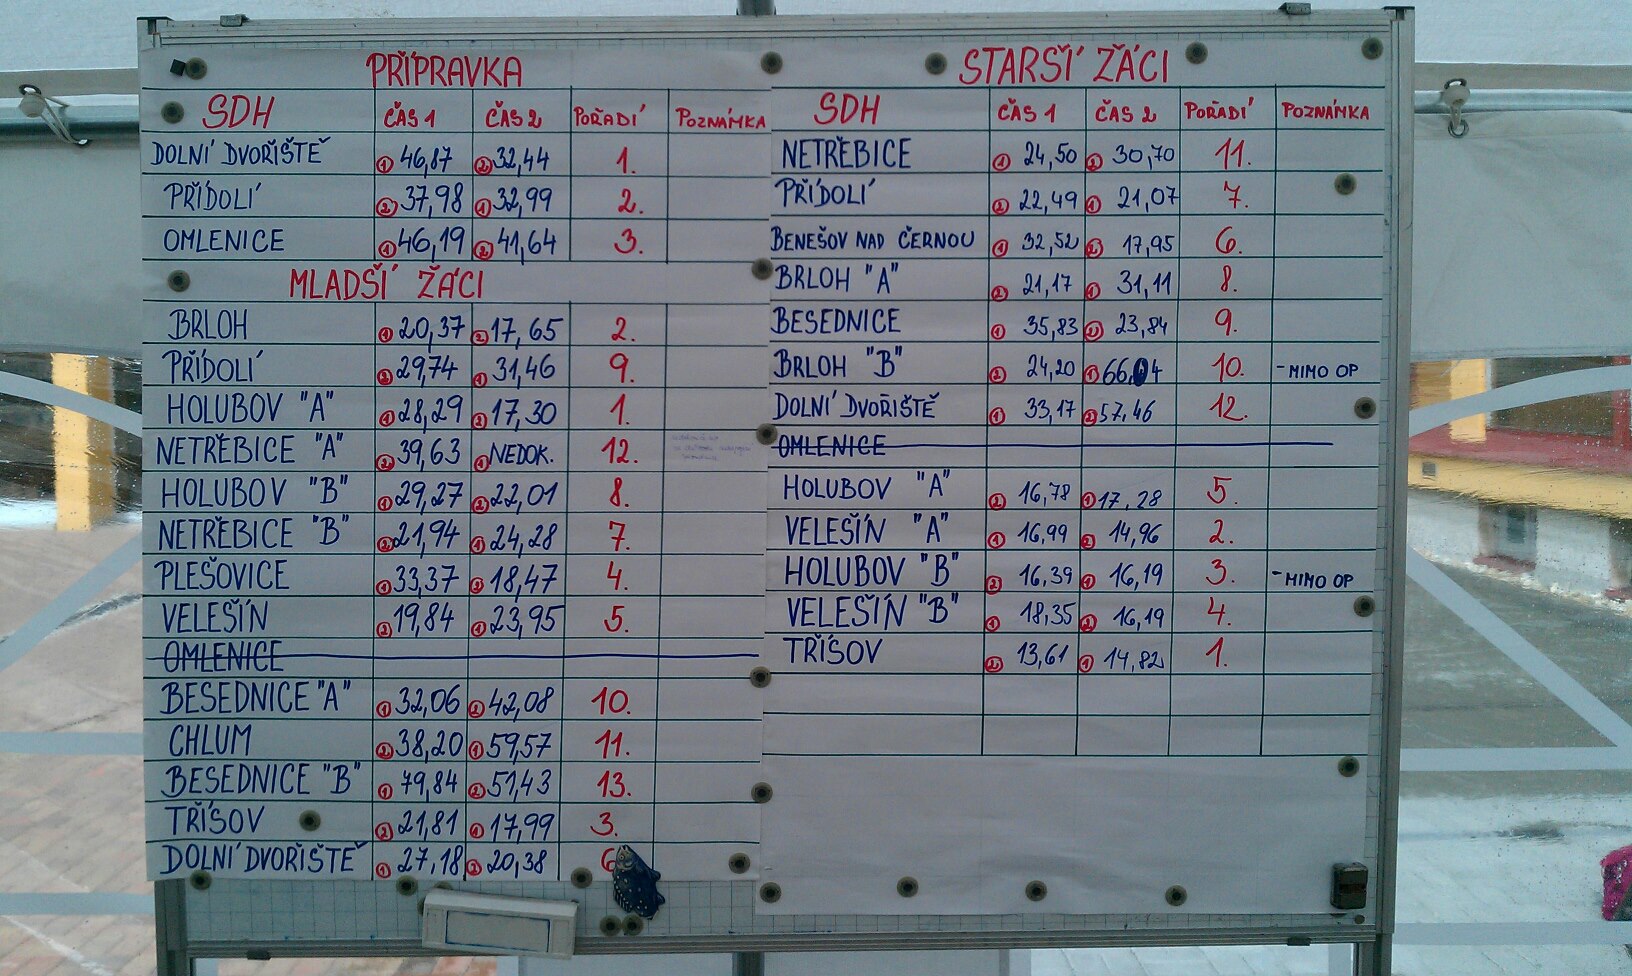 PŘÍPRAVKA
SDH ČAS 1 ČAS 2 POŘADÍ POZNÁMKA
DOLNÍ DVOŘIŠTĚ ① 46,87 ② 32,44 1.
PŘÍDOLÍ ② 37,98 ① 32,99 2.
OMLENICE ① 46,19 ② 41,64 3.
MLADŠÍ ŽÁCI
BRLOH ① 20,37 ② 17,65 2.
PŘÍDOLÍ ② 29,74 ① 31,46 9.
HOLUBOV "A" ① 28,29 ② 17,30 1.
NETŘEBICE "A" ② 39,63 ① NEDOK. 12.
HOLUBOV "B" ① 29,27 ② 22,01 8.
NETŘEBICE "B" ② 21,94 ① 24,28 7.
PLEŠOVICE ① 33,37 ② 18,47 4.
VELEŠÍN ② 19,84 ① 23,95 5.
OMLENICE
BESEDNICE "A" ① 32,06 ② 42,08 10.
CHLUM ② 38,20 ① 59,57 11.
BESEDNICE "B" ① 79,84 ② 51,43 13.
TŘÍSOV ② 21,81 ① 17,99 3.
DOLNÍ DVOŘIŠTĚ ① 27,18 ② 20,38 6
STARŠÍ ŽÁCI
SDH ČAS 1 ČAS 2 POŘADÍ POZNÁMKA
NETŘEBICE ① 24,50 ② 30,70 11.
PŘÍDOLÍ ② 22,49 ① 21,07 7.
BENEŠOV NAD ČERNOU ① 32,52 ② 17,95 6.
BRLOH "A" ② 21,17 ① 31,11 8.
BESEDNICE ① 35,83 ② 23,84 9.
BRLOH "B" ② 24,20 ① 66,04 10. -MIMO OP
DOLNÍ DVOŘIŠTĚ ① 33,17 ② 57,46 12.
OMLENICE
HOLUBOV "A" ② 16,78 ① 17,28 5.
VELEŠÍN "A" ① 16,99 ② 14,96 2.
HOLUBOV "B" ② 16,39 ① 16,19 3. -MIMO OP
VELEŠÍN "B" ① 18,35 ② 16,19 4.
TŘÍSOV ② 13,61 ① 14,82 1.